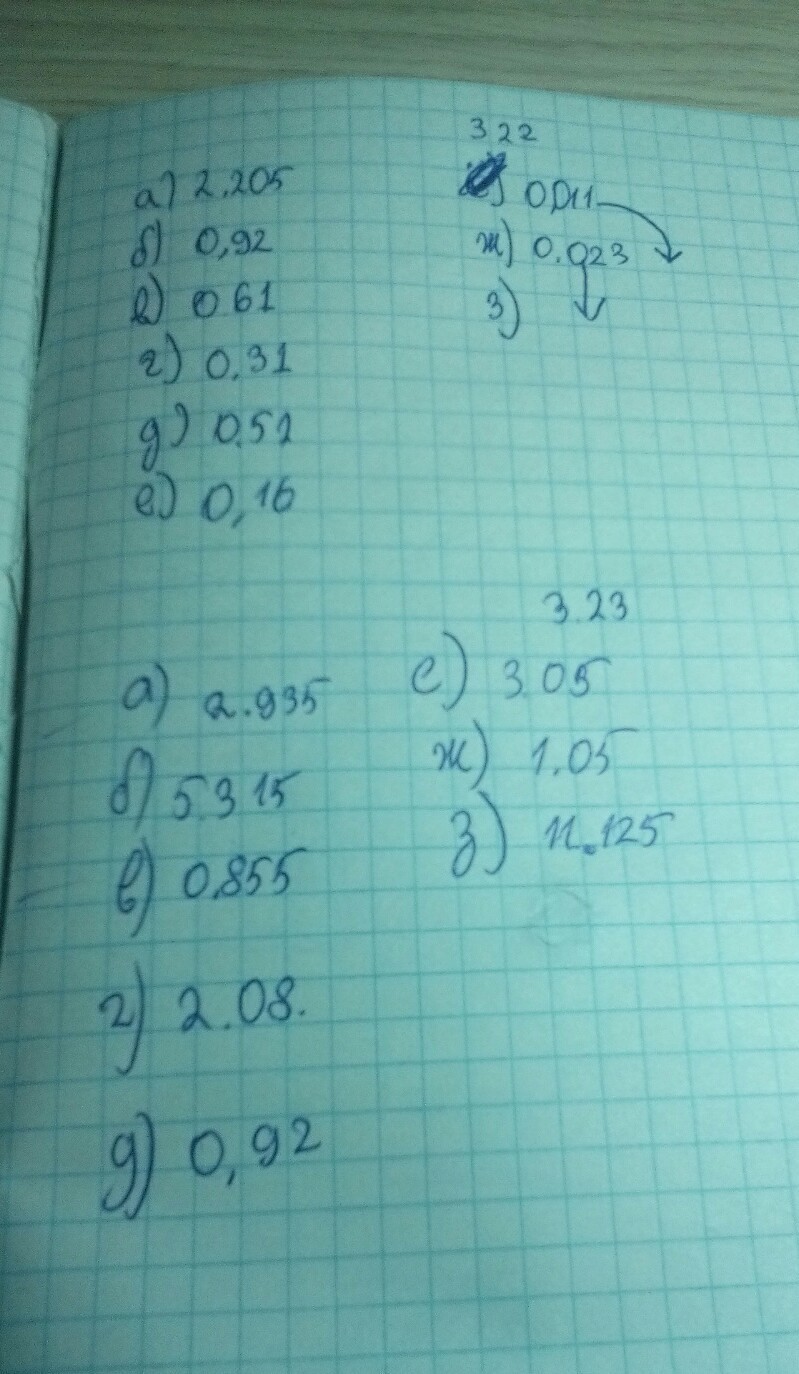 3 22
а) 2.205
б) 0,92
в) 0 61
г) 0.31
д) 0.51
е) 0,16
) 0,011
ж) 0.023
з)
3.23
а) 2.935
б) 5.315
в) 0.855
г) 2.08.
д) 0,92
е) 3 05
ж) 1.05
з) 11.125